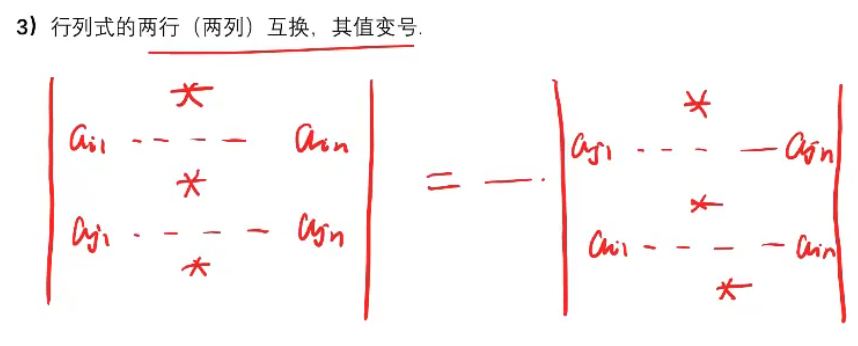 3) 行列式的两行（两列）互换，其值变号.
| * | | * |
| a_{i1} - - - - a_{in} | | a_{j1} - - - - a_{jn} |
| * | = - · | * |
| a_{j1} - - - - a_{jn} | | a_{i1} - - - - a_{in} |
| * | | * |